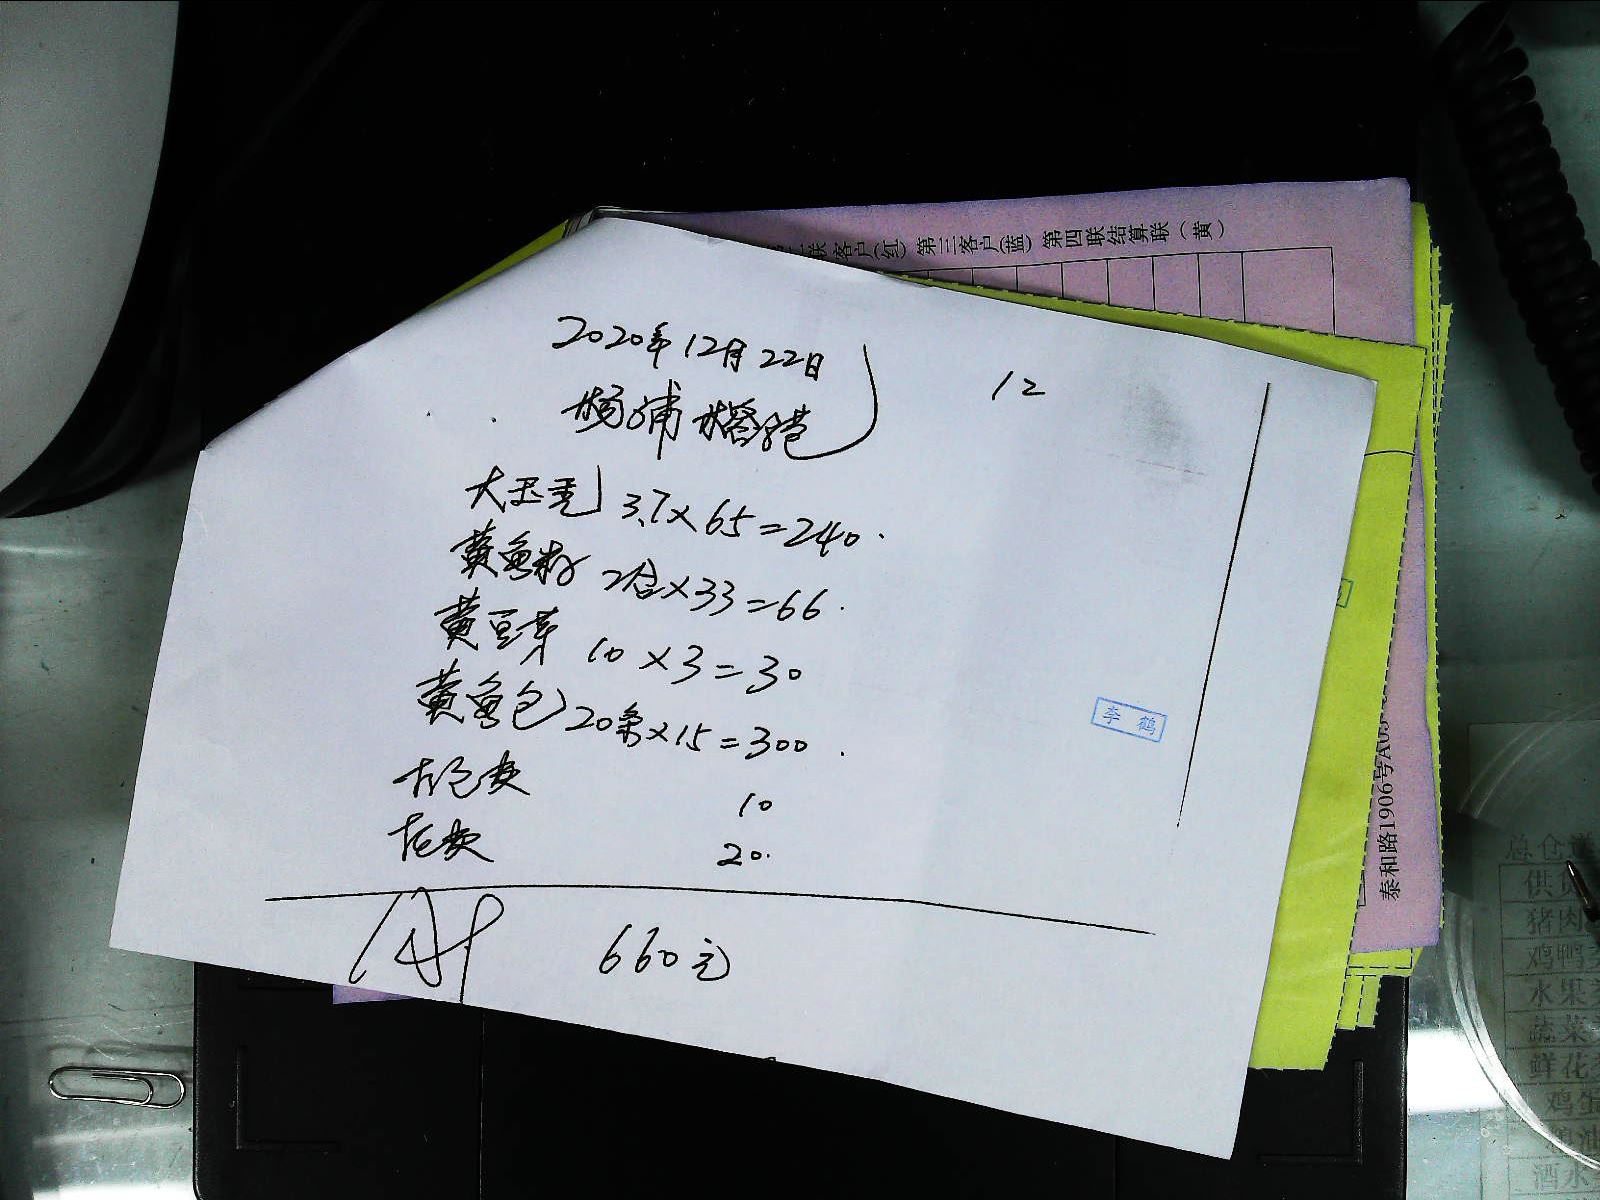 联客户(红) 第三客户(蓝) 第四联结算联（黄）
2020年12月22日
12
杨浦榕港
大玉秃 3.7×65=240.
黄鱼籽 2合×33=66.
黄豆芽 10×3=30
黄鱼包 20条×15=300.
打包费 10
车费 20.
660元
李鹤
泰和路1906号A03
总仓
供货
猪肉
鸡鸭
水果
蔬菜
鲜花
鸡蛋
粮油
酒水